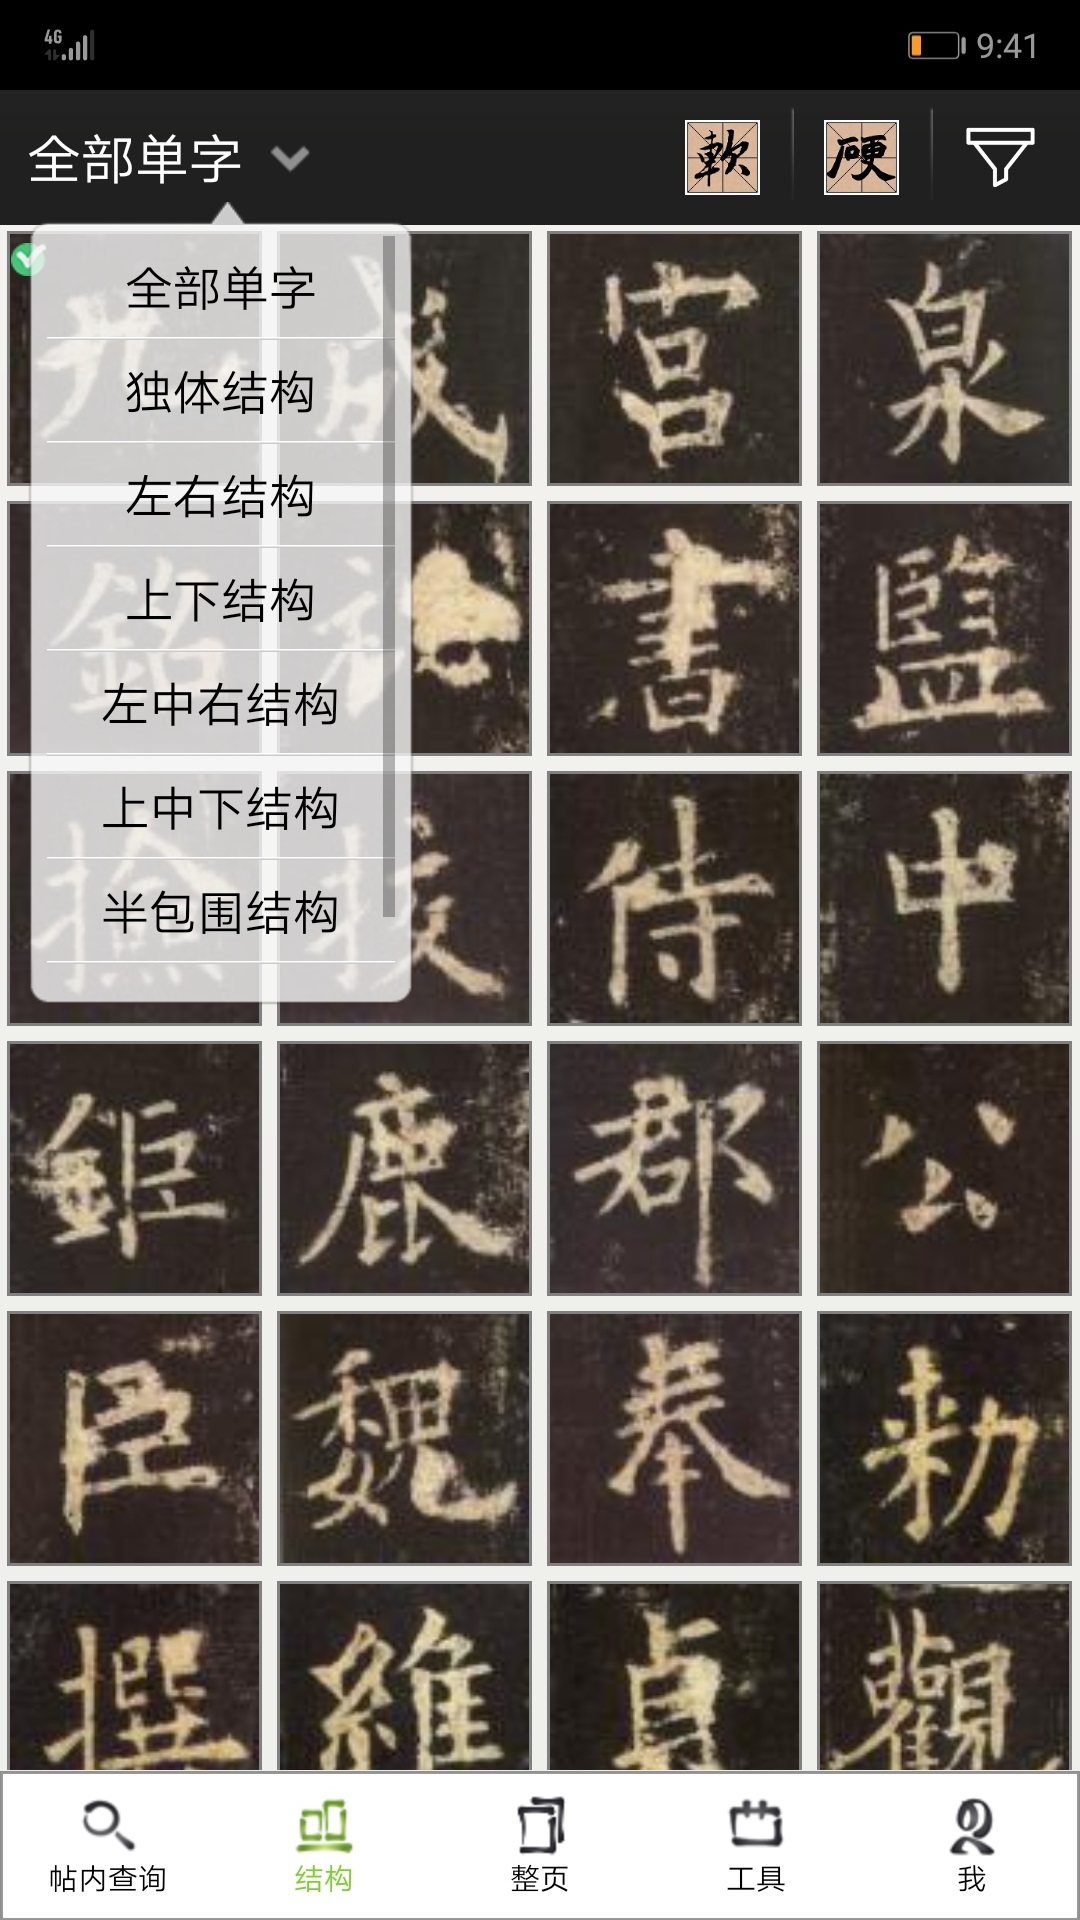 4G 9:41
全部单字 軟 硬
全部单字
独体结构
左右结构
上下结构
左中右结构
上中下结构
半包围结构
九 成 宮 泉
銘 秘 書 監
撿 挍 侍 中
鉅 鹿 郡 公
臣 魏 奉 勑
撰 維 貞 觀
帖内查询 结构 整页 工具 我